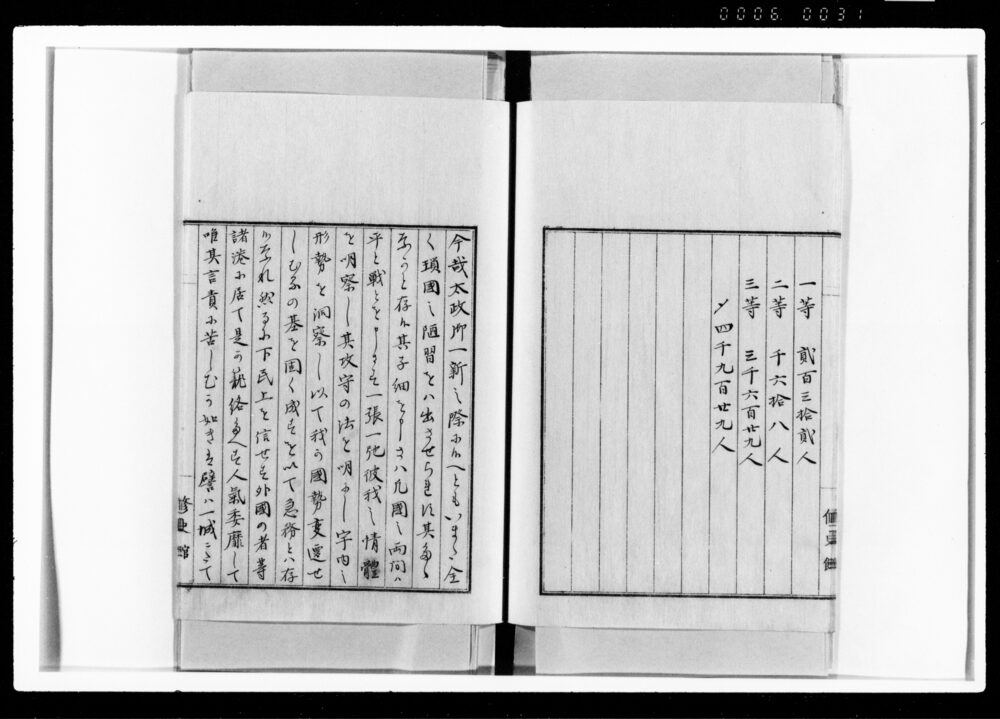 0006 0031
一等 貳百三拾貳人
二等 千六拾八人
三等 三千六百廿九人
〆四千九百廿九人
修史館
今哉太政御一新之際小候へともいまた全
く瑣國之陋習をハ出させられす其
存候其子細を申さハ凡國之両間ハ
平と戦とを 一張一弛彼我之情體
を明察し其攻守の法を明ふし宇内之
形勢を洞察し以て我か國勢変遷せ
しむるの基を固く成すを以て急務とハ存
候 然るに下民上を信せす外國の者等
諸港小居て是か 人氣委靡して
唯其言責小苦しむか如き 譬ハ一城こそて
修史館